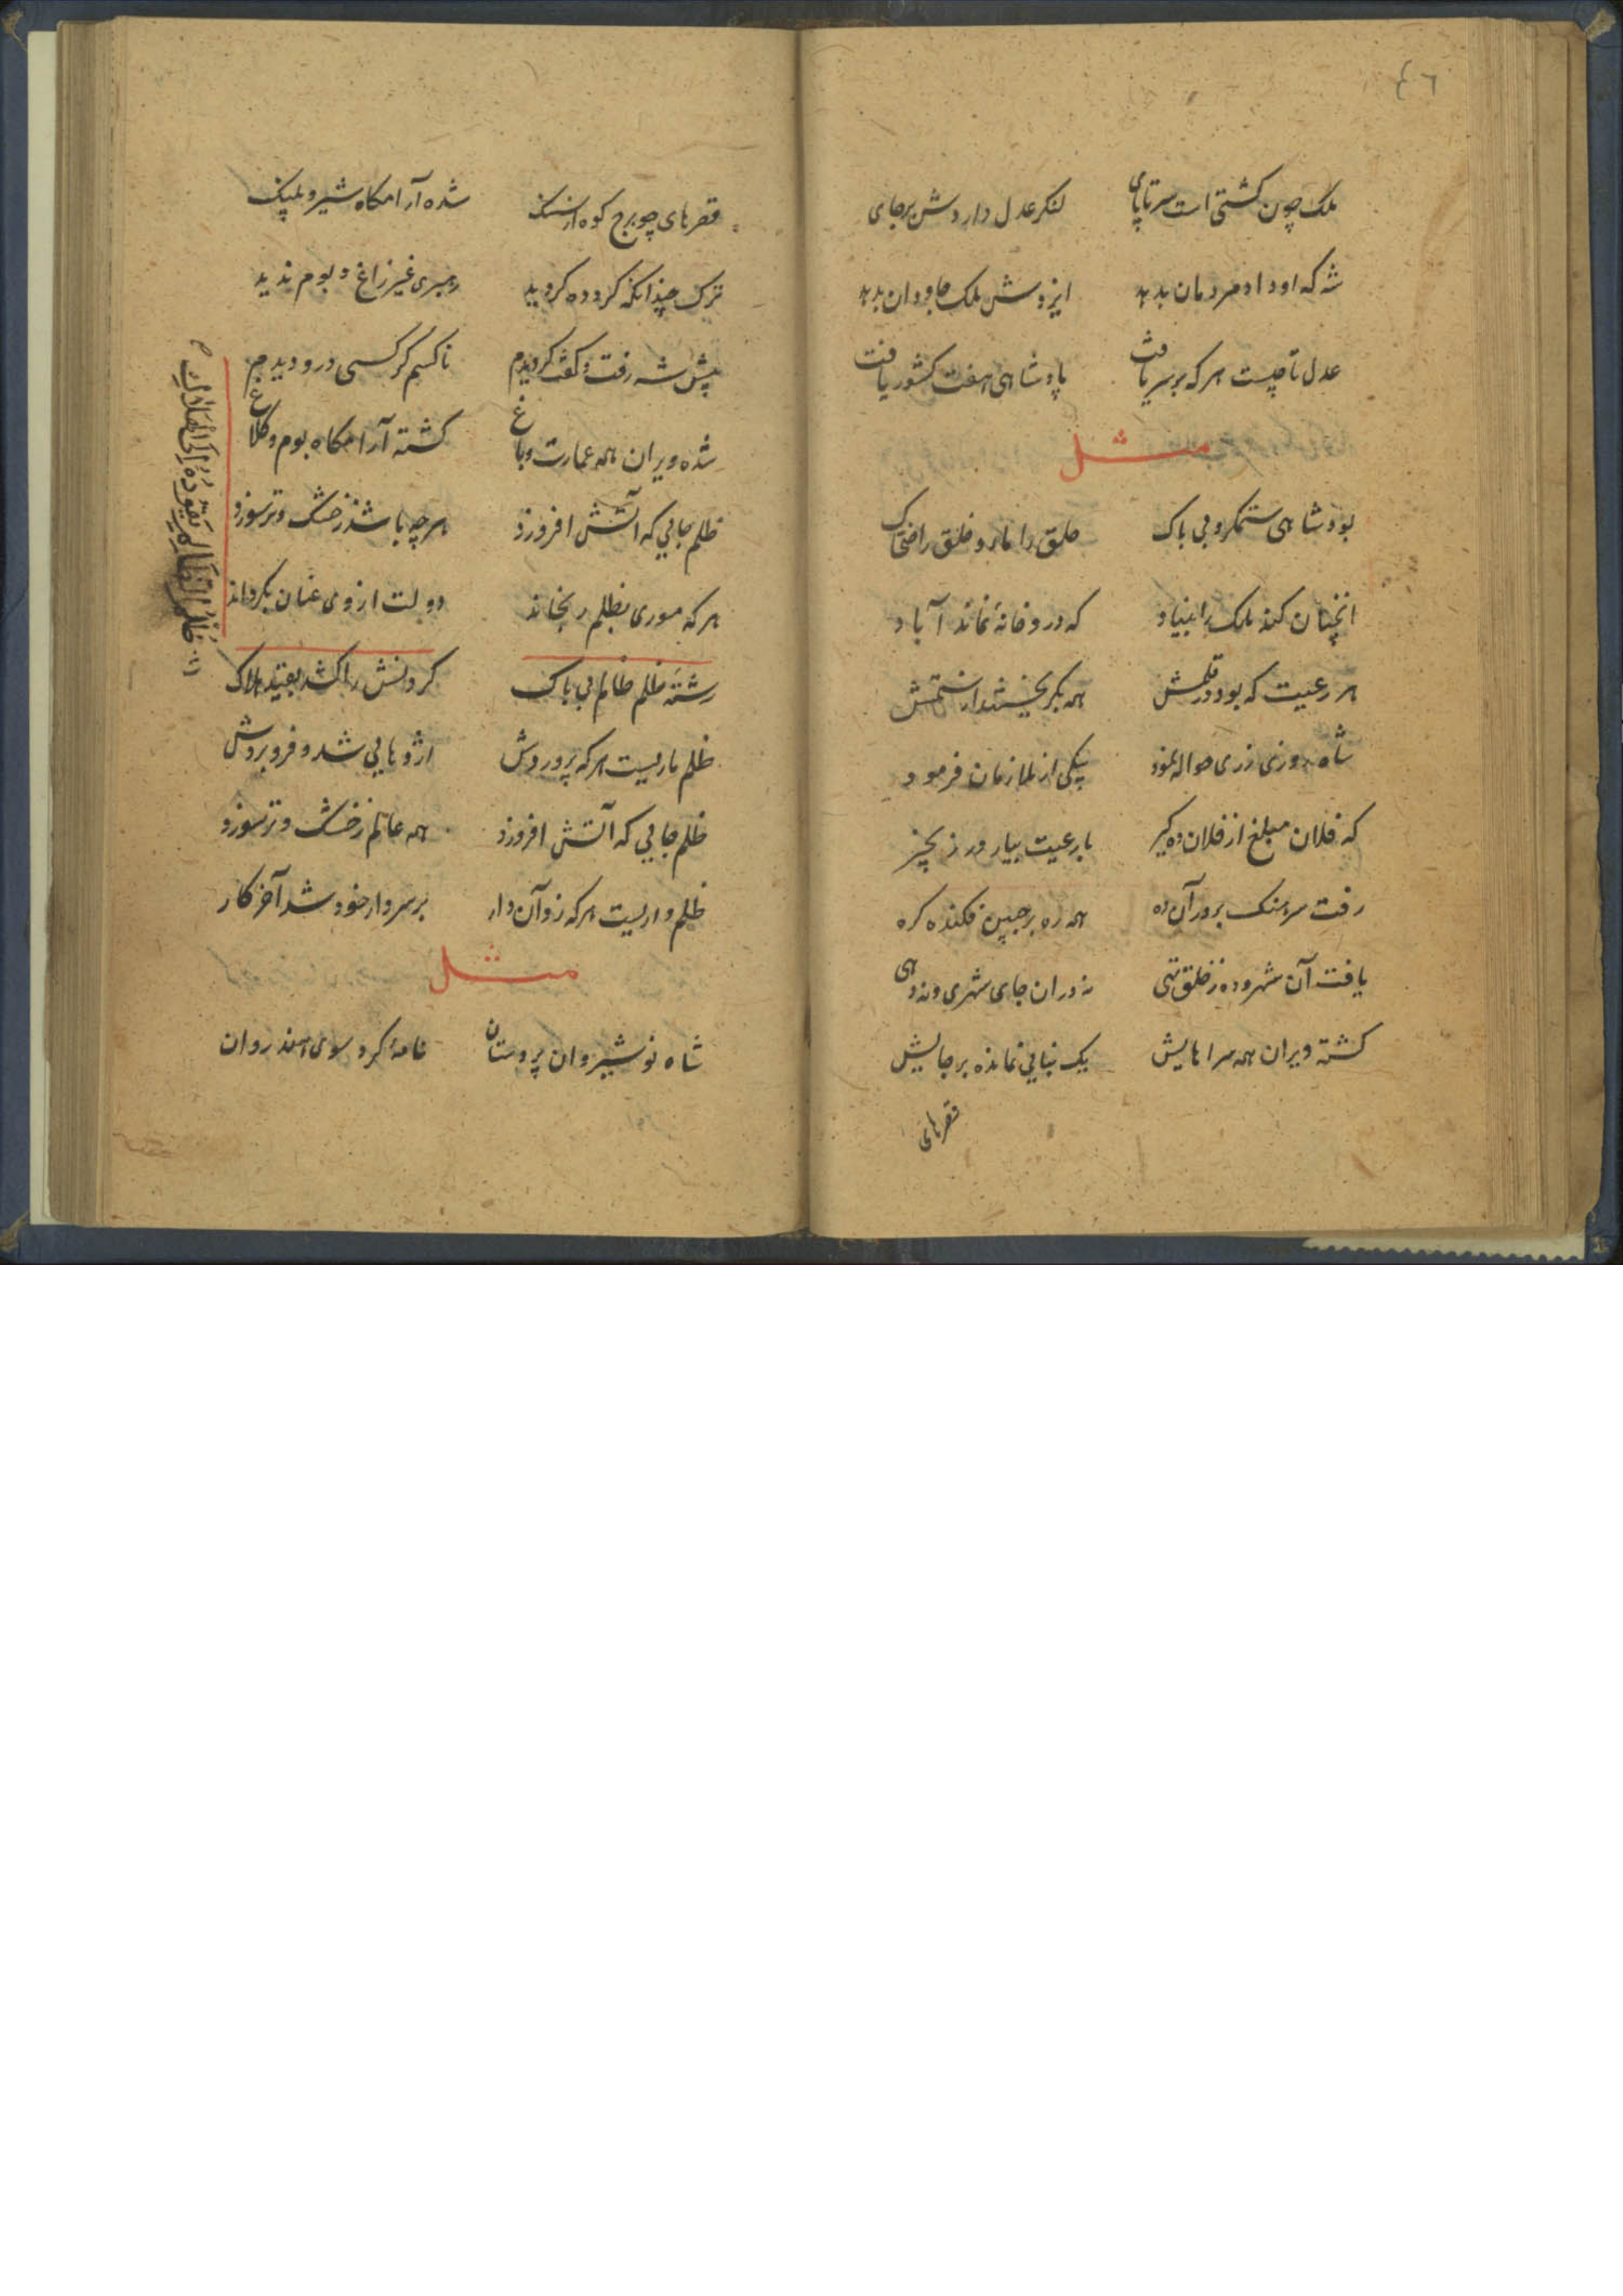 ٤٦
ملک چون کشتی است سرتاپای لنکر عدل داردش برجای
شه که او داد مردمان بدهد ایزدش ملک جاودان بدهد
عدل تاجیست هرکه بر سر یافت پادشاهی هفت کشور یافت
مثل
بود شاهی ستمکر و بی باک خلق را مار و خلق را ضحاک
انچنان کند ملک را بنیاد که درو خانهٔ نماند آباد
هر رعیت که بود در قلمش همه بگریختند از ستمش
شاه روزی زری حواله نمود بیکی از ملازمان فرمود
که فلان مبلغ از فلان ده گیر با رعیت بیاور زنجیر
رفت سرهنک بر در آن ده همه ره بر جبین فکنده کره
یافت آن شهر و ده ز خلق تهی نه دران جای شهری و نه دهی
کشته ویران همه سراهایش یک بنایی نمانده بر جایش
قصرهای
قصرهای چو برج کوه از سنک شده آرامکاه شیر و پلنک
ترک چندانکه کرد ده کردید رهبری غیر زاغ و بوم ندید
پیش شه رفت و کفت کردیدم ناکسم کر کسی درو دیدم
شده ویران همه عمارت و باغ کشته آرامکاه بوم و کلاغ
ظلم جایی که آتش افروزد هرچه باشد ز خشک و تر سوزد
هرکه موری بظلم رنجاند دولت از وی عنان بکرداند
رشتهٔ ظلم ظالم بی باک کردنش را کشد بقید هلاک
ظلم ماریست هرکه پروردش اژدهایی شد و فرو بردش
ظلم جایی که آتش افروزد همه عالم ز خشک و تر سوزد
ظلم داریست هرکه زد آن دار بر سر دار خود شد آخر کار
مثل
شاه نوشیروان پردستان نامهٔ کرد سوی هندوان
ظلم الظالم یقوده الی الهلاک